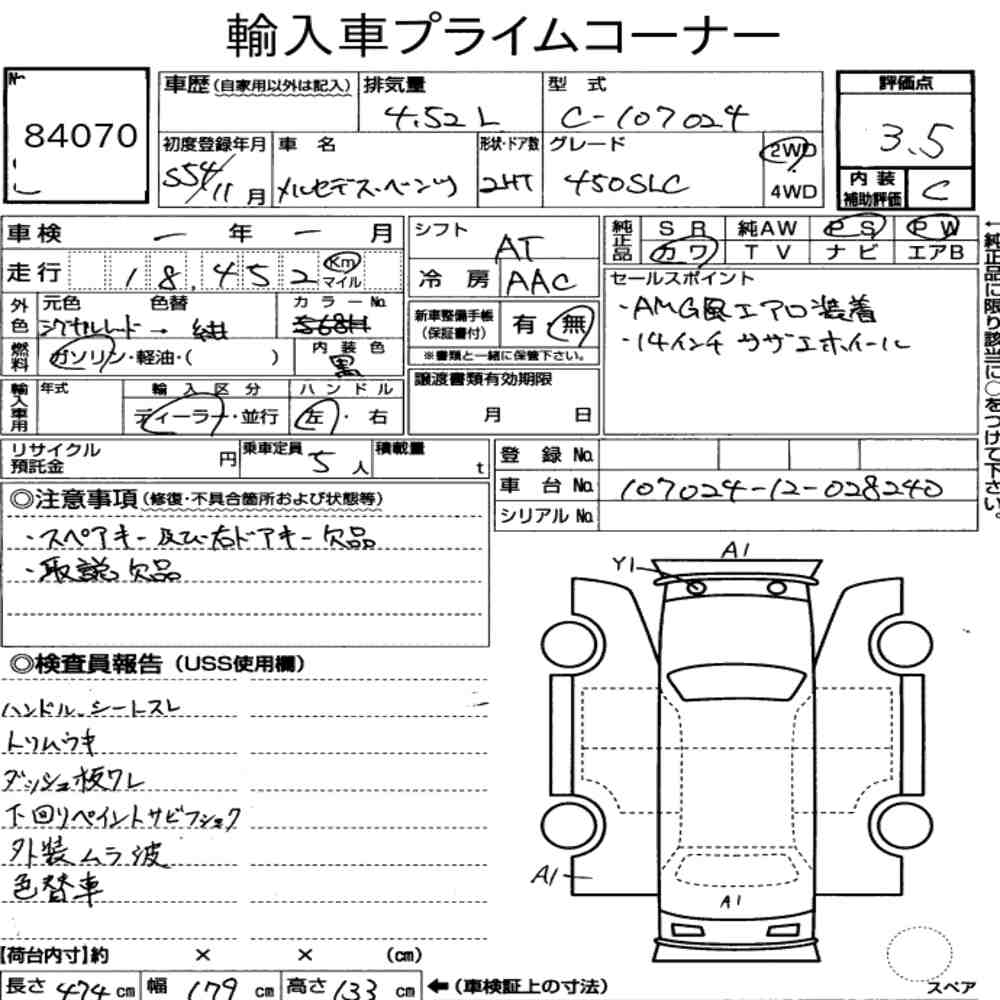 輸入車プライムコーナー
No.
84070
車歴(自家用以外は記入) 排気量 型式
4.52L C-107024
評価点
3.5
初度登録年月 車名 形状・ドア数 グレード
S54/11月 メルセデス・ベンツ 2HT 450SLC 2WD
4WD
内装
補助評価 C
車検 ー年 ー月
走行 18,452 Km
マイル
外色 元色 色替 カラーNo.
シグナルレード → 紺 568H
燃料 ガソリン・軽油・( ) 内装色
黒
輸入車用 年式 輸入区分 ハンドル
ディーラー・並行 左・右
シフト
AT
冷房 AAC
新車整備手帳
(保証書付) 有・無
※書類と一緒に保管下さい。
譲渡書類有効期限
月 日
純正品 SR 純AW PS PW
カワ TV ナビ エアB
セールスポイント
・AMG風エアロ装着
・14インチ サザエホイール
←純正品に限り該当に○をつけて下さい。
リサイクル
預託金 円 乗車定員 5人 積載量 t
登録No.
車台No. 107024-12-028240
シリアルNo.
◎注意事項(修復・不具合箇所および状態等)
・スペアキー及び右ドアキー欠品
・取説欠品
◎検査員報告(USS使用欄)
ハンドル、シートスレ
トリムウキ
ダッシュ板ワレ
下回りペイントサビフショク
外装ムラ波
色替車
A1
Y1
A1
A1
【荷台内寸】約 × × (cm)
長さ 474cm 幅 179cm 高さ 133cm ←(車検証上の寸法)
スペア